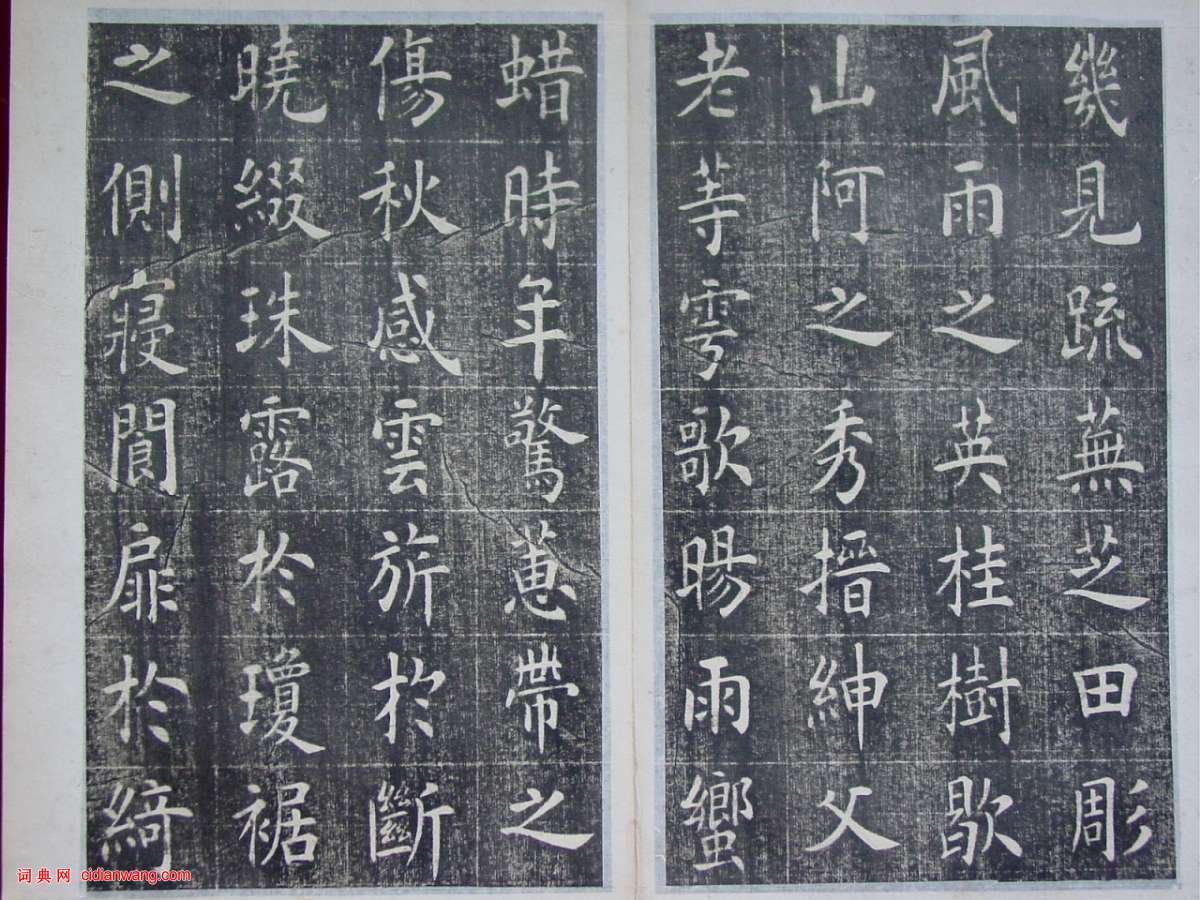 幾見疏蕪芝田彫
風雨之英桂樹歇
山阿之秀搢紳父
老等雩歌暘雨蠁
蜡時年驚蕙帶之
傷秋感雲旂於斷
曉綴珠露於瓊裾
之側寢閬扉於綺
词典网 cidianwang.com